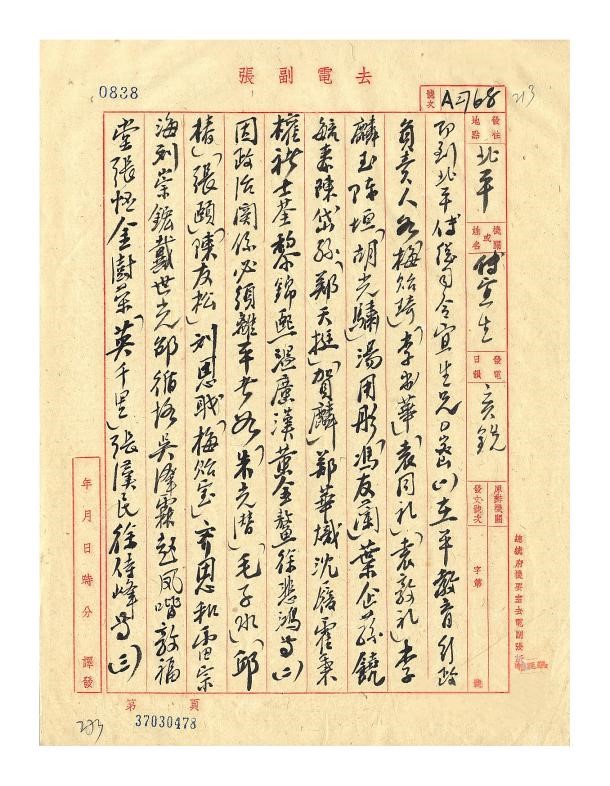 0838
去電副張
號次 A元768
213
發往地點 北平
機關或姓名 傅宜生
發電日韻 亥銑
原辦機關發文號次 字第 號
總統府機要室去電副張紙
即到北平傅總司令宜生兄密(一)在平教育行政
負責人如梅貽琦李書華袁同禮袁敦禮李
麟玉陳垣胡先驌湯用彤馮友蘭葉企蓀饒
毓泰陳岱孫鄭天挺賀麟鄭華熾沈履霍秉
權褚士荃黎錦熙溫廣漢黃金鰲徐悲鴻等(二)
因政治關係必須離平者如朱光潛毛子水邱
椿張頤陳友松劉思職梅貽寶齊思和雷宗
海劉崇鋐戴世光邵循恪吳澤霖趙鳳喈敦福
堂張恆金澍榮英千里張漢民徐侍峰等(三)
年月日時分 譯發
第 頁
37030478
213